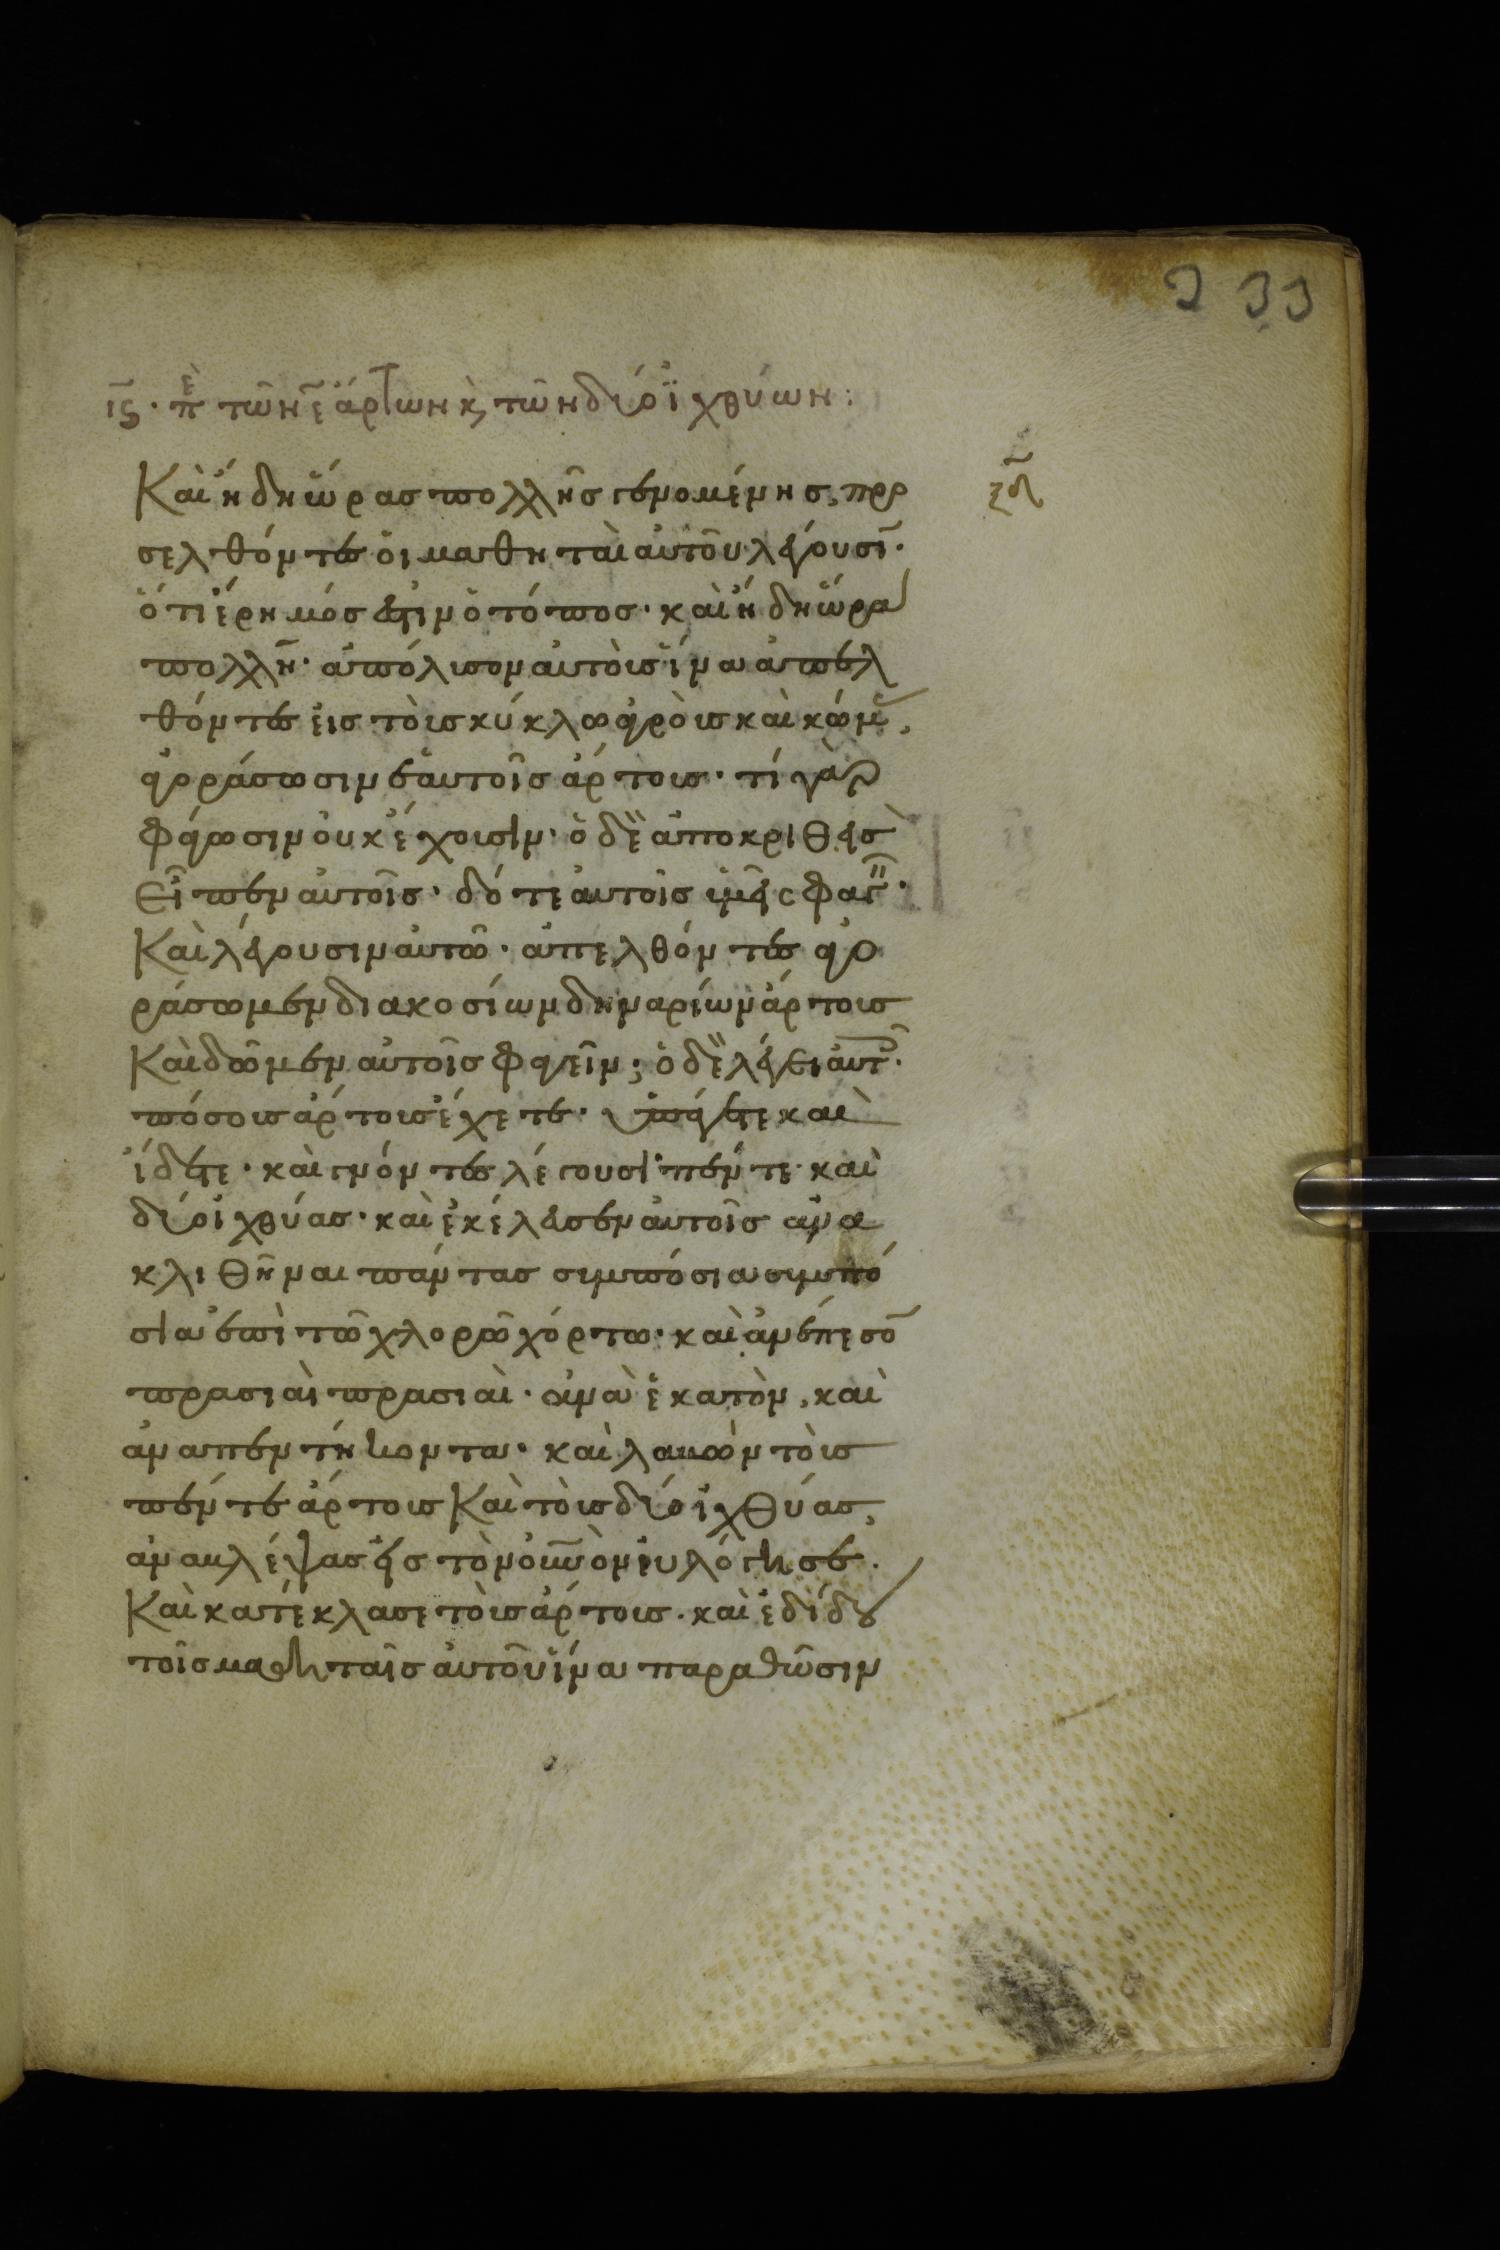 233
ιϛ̄· πὲ τῶν ε̄ ἄρτων κ̀ τῶν δύο ἰχθύων:
Καὶ ἤδη ὥρας πολλῆς γενομένης, προ
σελθόντες οἱ μαθηταὶ αὐτοῦ λέγουσῑ·
ὅτι ἔρημός ἐστιν ὁ τόπος· καὶ ἤδη ὥρα
πολλῆ· ἀπόλυσον αὐτοὺς ἵνα ἀπελ
θόντες εἰς τοὺς κύκλω ἀγροὺς καὶ κώμ,
ἀγοράσωσιν ἑαυτοῖς ἄρτους· τί γὰρ
φάγωσιν οὐκ ἔχουσιν· ὁ δὲ ἀποκριθεὶς
Εἶπεν αὐτοῖς· δότε αὐτοῖς ὑμεῖς φαγ·
Καὶ λέγουσιν αὐτῶ· ἀπελθόντες ἀγο
ράσωμεν διακοσίων δηναρίων ἄρτους
Καὶ δῶμεν αὐτοῖς φαγεῖν; ὁ δὲ λέγει αὐτ·
πόσους ἄρτους ἔχετε· ὑπάγετε καὶ
ἴδετε· καὶ γνόντες λέγουσι· πέντε καὶ
δύο ἰχθύας· καὶ ἐκέλευσεν αὐτοῖς ἀνα
κλιθῆναι πάντας συμπόσια συμπό
σια ἐπὶ τῶ χλορῶ χόρτω· καὶ ἀνέπεσο̄
πρασιαὶ πρασιαὶ· ἀνὰ ἑκατὸν, καὶ
ἀνὰ πεντήκοντα· καὶ λαβὼν τοὺς
πέντε ἄρτους Καὶ τοὺς δύο ἰχθύας,
ἀναβλέψας εἰς τὸν οὐνὸν εὐλόγησε·
Καὶ κατέκλασε τοὺς ἄρτους· καὶ ἐδίδου
τοῖς μαθηταῖς αὐτοῦ ἵνα παραθῶσιν